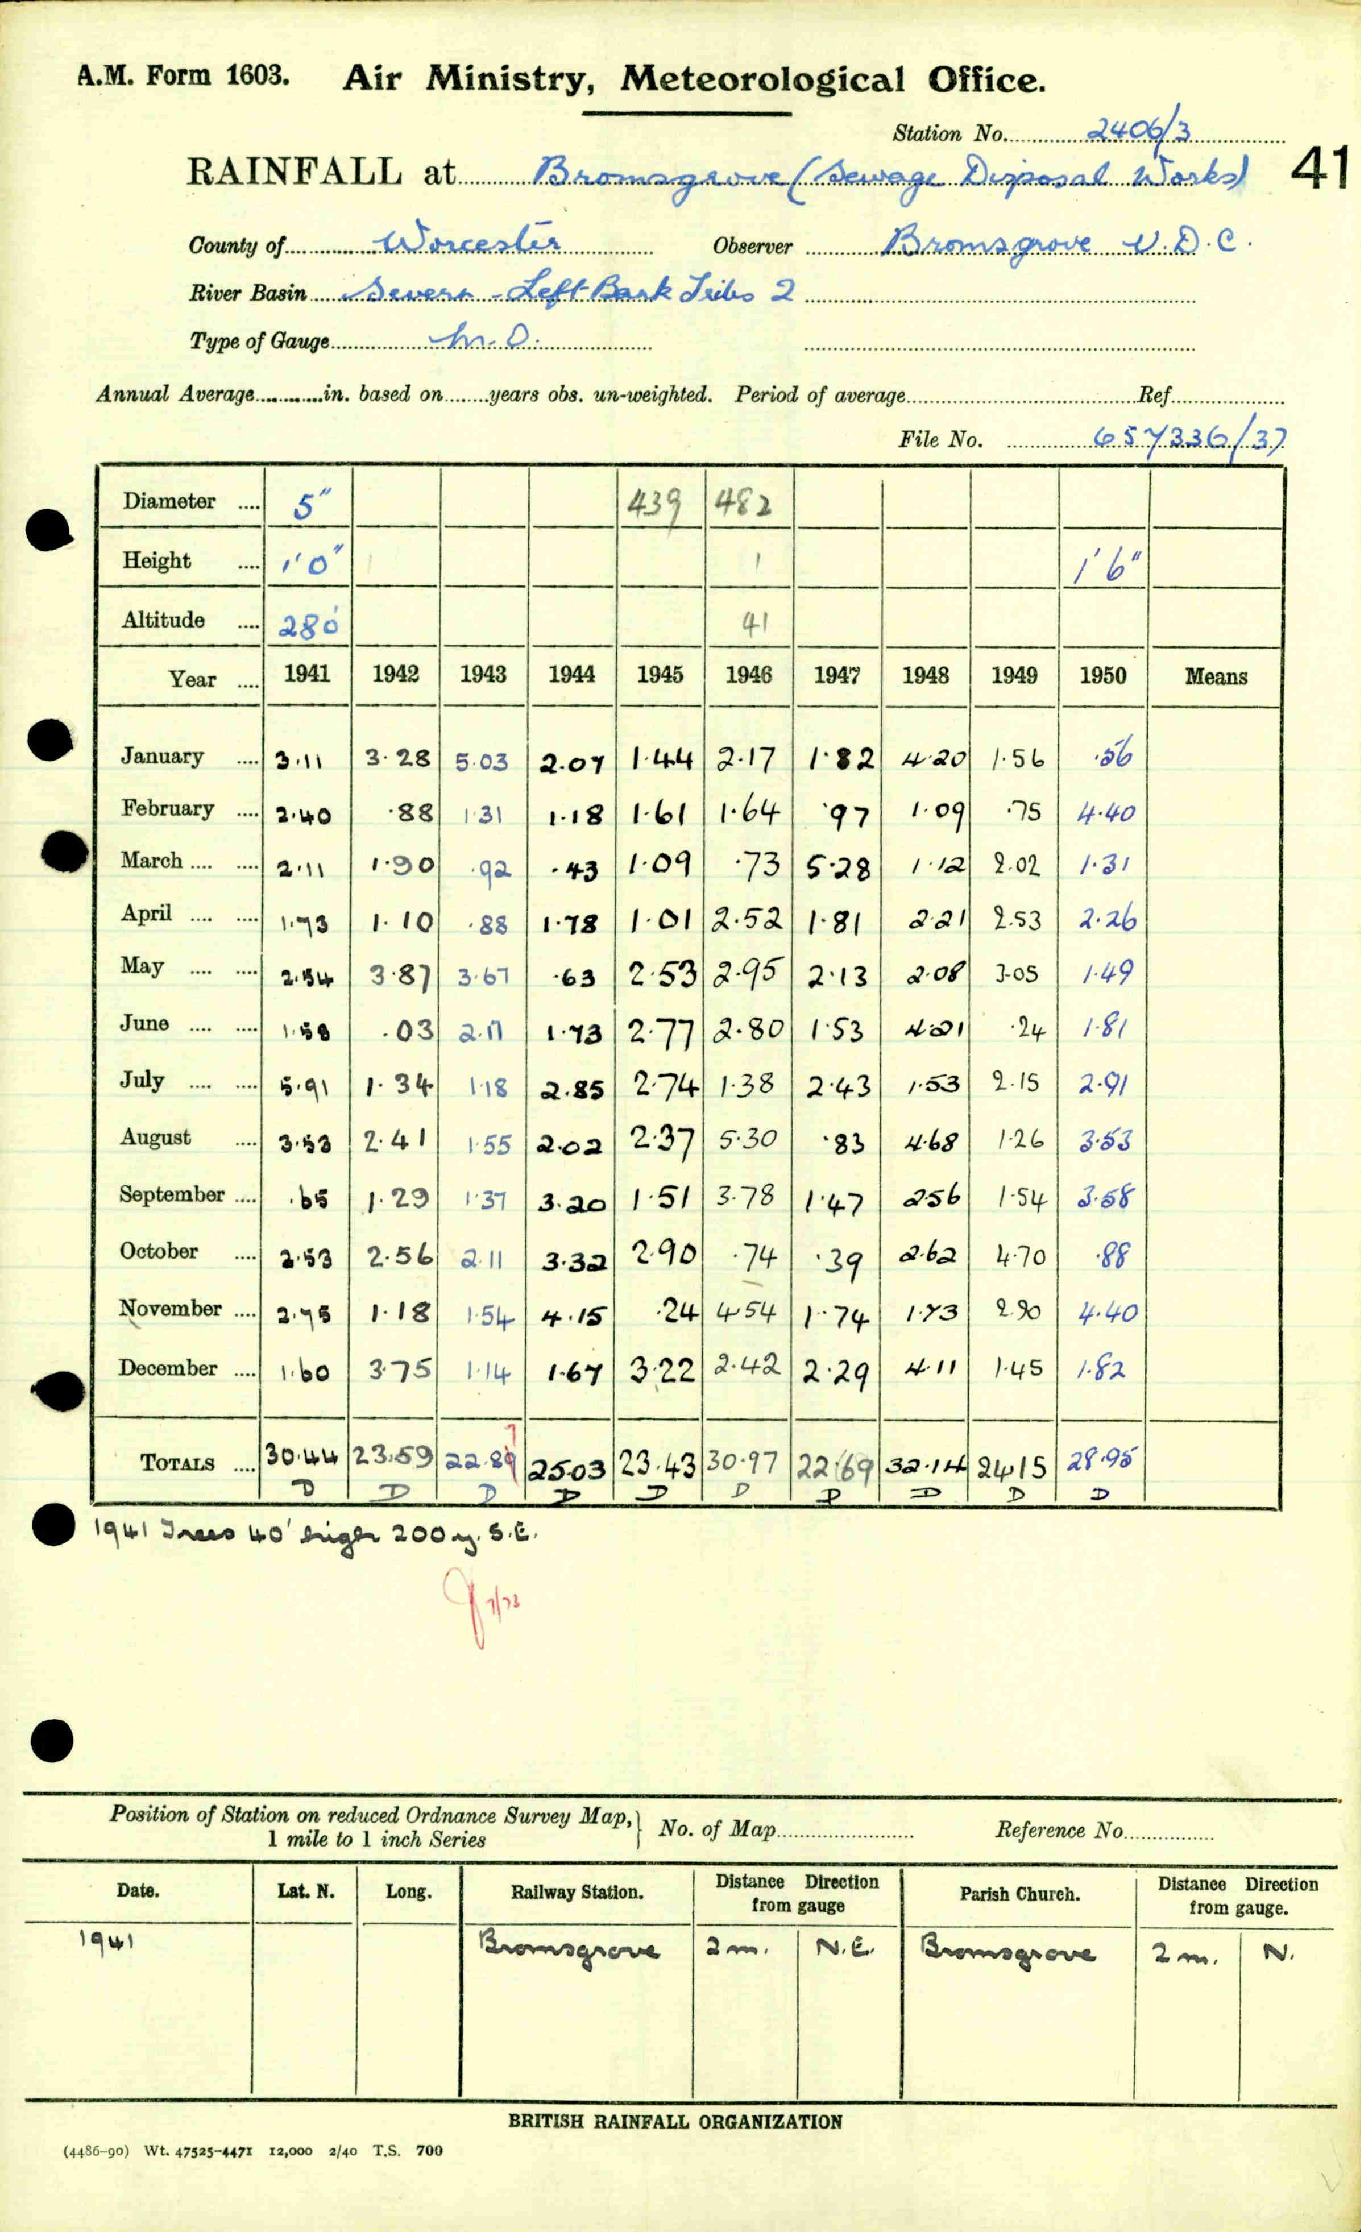 A.M. Form 1603. Air Ministry, Meteorological Office.
Station No. 2406/3
RAINFALL at Bromsgrove (Sewage Disposal Works) 41
County of Worcester Observer Bromsgrove U.D.C.
River Basin Severn - Left Bank Tribs 2
Type of Gauge M.O.
Annual Average in. based on years obs. un-weighted. Period of average Ref.
File No. 657336/37
Diameter 5" 439 482
Height 1'0" 1 1'6"
Altitude 280' 41
Year 1941 1942 1943 1944 1945 1946 1947 1948 1949 1950 Means
January 3.11 3.28 5.03 2.07 1.44 2.17 1.82 4.20 1.56 .56
February 2.40 .88 1.31 1.18 1.61 1.64 .97 1.09 .75 4.40
March 2.11 1.90 .92 .43 1.09 .73 5.28 1.12 2.02 1.31
April 1.73 1.10 .88 1.78 1.01 2.52 1.81 2.21 2.53 2.26
May 2.54 3.87 3.67 .63 2.53 2.95 2.13 2.08 3.05 1.49
June 1.58 .03 2.17 1.73 2.77 2.80 1.53 4.21 .24 1.81
July 5.91 1.34 1.18 2.85 2.74 1.38 2.43 1.53 2.15 2.91
August 3.53 2.41 1.55 2.02 2.37 5.30 .83 4.68 1.26 3.53
September .65 1.29 1.37 3.20 1.51 3.78 1.47 2.56 1.54 3.58
October 2.53 2.56 2.11 3.32 2.90 .74 .39 2.62 4.70 .88
November 2.75 1.18 1.54 4.15 .24 4.54 1.74 1.73 2.90 4.40
December 1.60 3.75 1.14 1.67 3.22 2.42 2.29 4.11 1.45 1.82
7
TOTALS 30.44 23.59 22.89 25.03 23.43 30.97 22.69 32.14 24.15 28.95
D D D D D D D D D D
1941 Trees 40' high 200 y. S.E.
7/73
Position of Station on reduced Ordnance Survey Map, 1 mile to 1 inch Series No. of Map Reference No.
Date. Lat. N. Long. Railway Station. Distance Direction from gauge Parish Church. Distance Direction from gauge.
1941 Bromsgrove 2 m. N.E. Bromsgrove 2 m. N.
BRITISH RAINFALL ORGANIZATION
(4486-90) Wt. 47525-4471 12,000 2/40 T.S. 700